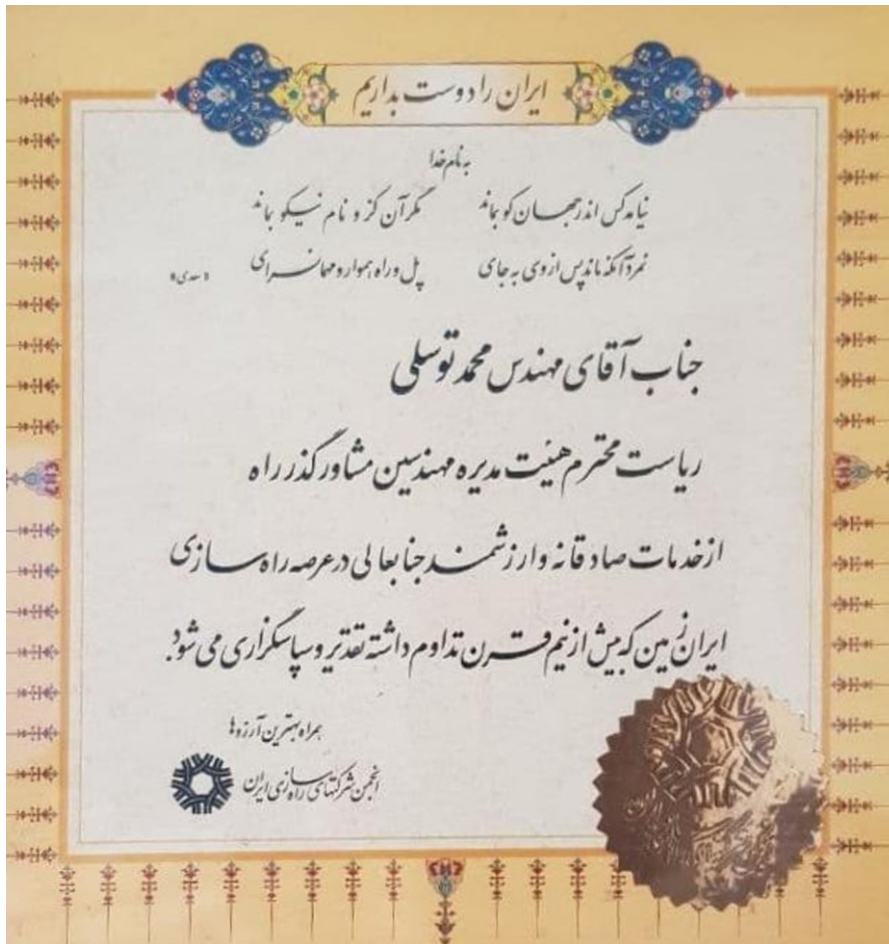 ایران را دوست بداریم
به نام خدا
نیامد کس اندر جهان کو بماند مگر آن کز و نام نیکو بماند
نمرد آنکه ماند پس از وی به جای پل و راه هموار و مهمانسرای «سعدی»
جناب آقای مهندس محمد توسلی
ریاست محترم هیئت مدیره مهندسین مشاور گذرراه
از خدمات صادقانه و ارزشمند جنابعالی در عرصه راه سازی
ایران زمین که بیش از نیم قرن تداوم داشته تقدیر و سپاسگزاری می شود.
همراه بهترین آرزوها
انجمن شرکتهای راه سازی ایران